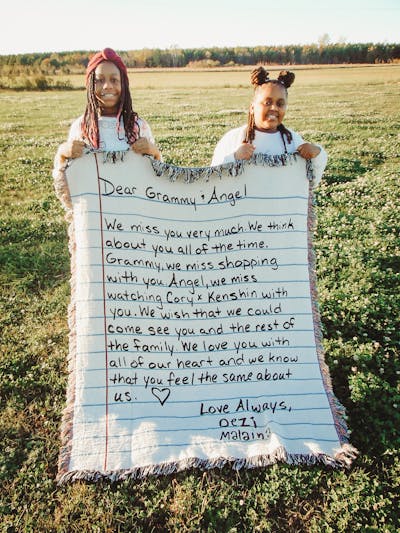 Dear Grammy + Angel
We miss you very much. We think
about you all of the time.
Grammy, we miss shopping
with you. Angel, we miss
watching Cory x Kenshin with
you. We wish that we could
come see you and the rest of
the family. We love you with
all of our heart and we know
that you feel the same about
us. ♡
Love Always,
Dezi
Malaina